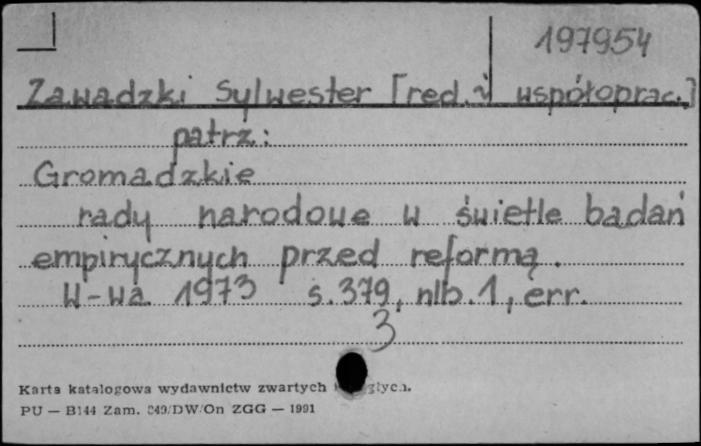 197954
Zawadzki Sylwester [red. i współoprac.]
patrz:
Gromadzkie
rady narodowe w świetle badań
empirycznych przed reformą.
W-wa 1973 s. 379, nlb. 1, err.
3
Karta katalogowa wydawnictw zwartych
PU — B144 Zam. /DW/On ZGG — 1991